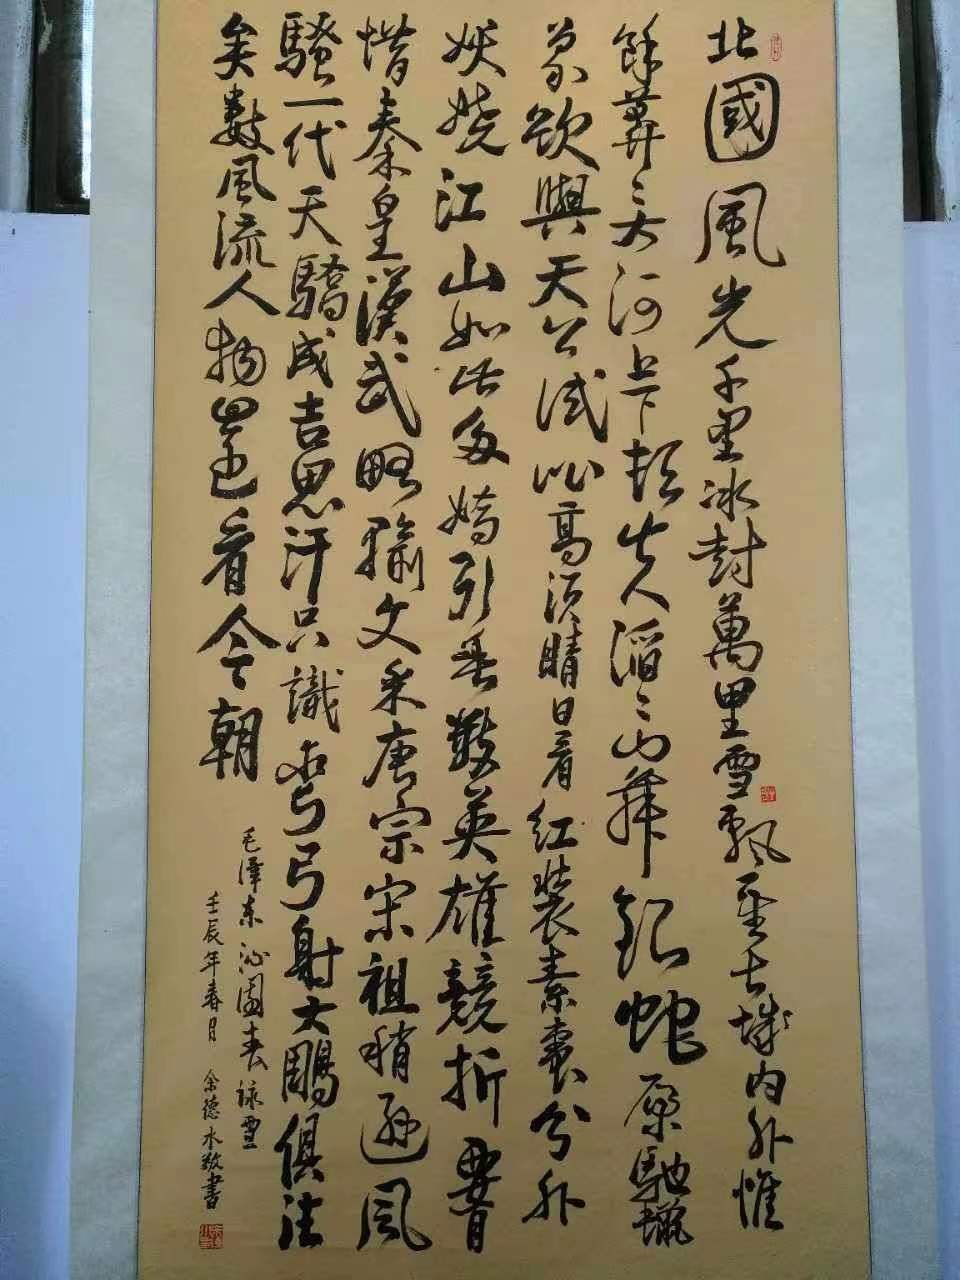 北國風光千里冰封萬里雪飄望長城內外惟
餘莽々大河上下頓失滔々山舞銀蛇原馳蠟
象欲與天公試比高須晴日看紅裝素裹分外
妖嬈江山如此多嬌引無數英雄競折要
惜秦皇漢武略輸文采唐宗宋祖稍遜風
騷一代天驕成吉思汗只識弯弓射大鵰俱往
矣數風流人物還看今朝
毛澤東沁園春詠雪
壬辰年春月 余德水敬書